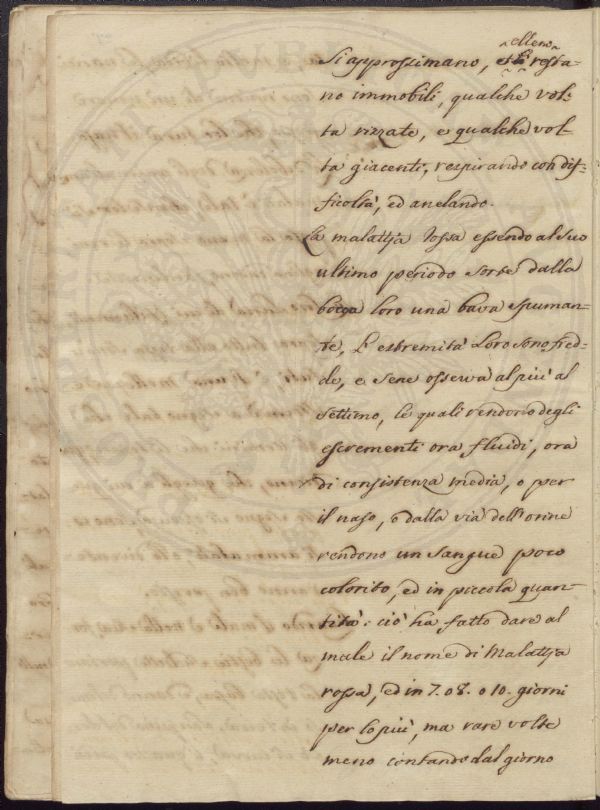 elleno
si approssimano, e resta-
no immobili, qualche vol-
ta rizzate, e qualche vol-
ta giacenti, respirando con dif-
ficoltà, ed anelando.
La malattja rossa essendo al suo
ultimo periodo sorte dalla
bocca loro una bava spuman-
te, l'estremità loro sono fred-
de, e sene osserva al più al
settimo, le quali rendono degli
escrementi ora fluidi, ora
di consistenza media, o per
il naso, o dalla via dell'orine
rendono un sangue poco
colorito, ed in piccola quan-
tità: ciò ha fatto dare al
male il nome di Malattja
rossa, ed in 7. o 8. o 10. giorni
per lo più, ma rare volte
meno contando dal giorno